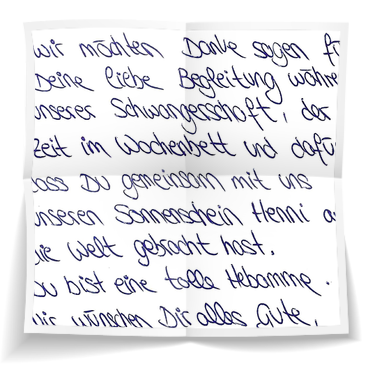 wir möchten Danke sagen fü
Deine liebe Begleitung währe
unserer Schwangerschaft, der
Zeit im Wochenbett und dafür
dass Du gemeinsam mit uns
unseren Sonnenschein Henni a
die Welt gebracht hast.
Du bist eine tolle Hebamme.
Wir wünschen Dir alles Gute,